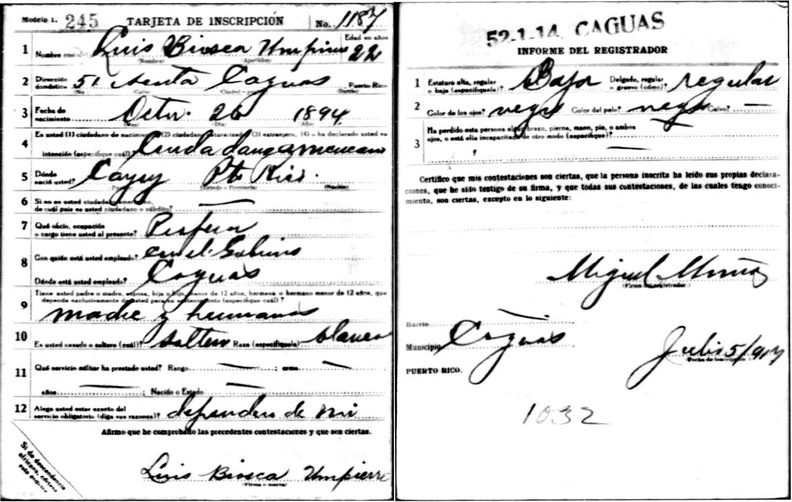 Modelo 1. 245 TARJETA DE INSCRIPCIÓN No. 1187
Edad en años
1 Nombre Luis Biosca Umpierre 22
(Nombre) (Apellidos)
2 Dirección domést. 51 Acosta Caguas Puerto Rico
3 Fecha de nacimiento Octu. 26 1894
(Mes) (Día) (Año)
4 Es usted (1) ciudadano de nacimiento, (2) ciudadano naturalizado, (3) extranjero, (4) o ha declarado usted su intención (especifique cuál)? Ciudadano americano
5 Dónde nació usted? Cayey Pto Rico.
(Nación)
6 Si no es usted ciudadano, de cuál país es usted ciudadano o súbdito? —
7 Qué oficio, ocupación o cargo tiene usted al presente? Profesor
8 Con quién está usted empleado? en el Gobierno
Dónde está usted empleado? Caguas
9 Tiene usted padre o madre, esposa, hijo o hija menor de 12 años, hermana o hermano menor de 12 años, que dependa exclusivamente de usted para su sostenimiento (especifique cuál)?
madre y hermanas
10 Es usted casado o soltero (cuál)? soltero Raza (especifíquela) blanca
11 Qué servicio militar ha prestado usted? Rango — arma —
años — ; Nación o Estado —
12 Alega usted estar exento del servicio obligatorio (diga sus razones)? dependen de mi
Afirmo que he comprobado las precedentes contestaciones y que son ciertas.
Luis Biosca Umpierre
(Firma o marca)
52-1-14 CAGUAS
INFORME DEL REGISTRADOR
1 Estatura alta, regular o baja (especifique)? Baja Delgado, regular o grueso (cómo)? regular
2 Color de los ojos? negro Color del pelo? negro Calvo? —
3 Ha perdido esta persona algún brazo, pierna, mano, pie, o ambos ojos, o está ella incapacitada de otro modo (especifique)?
—
Certifico que mis contestaciones son ciertas, que la persona inscrita ha leído sus propias declaraciones, que he sido testigo de su firma, y que todas sus contestaciones, de las cuales tengo conocimiento, son ciertas, excepto en lo siguiente:
Miguel Muñoz
(Firma del registrador)
Barrio —
Municipio Caguas Julio 5/917
PUERTO RICO. Fecha de inscripción
1032